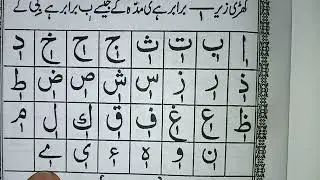 کھڑی زیر ــٖــ برابر ہے ی مدّہ کے جیسے بٖ برابر ہے بِیْ کے
اٖ بٖ تٖ ثٖ جٖ حٖ خٖ دٖ
ذٖ رٖ زٖ سٖ شٖ صٖ ضٖ طٖ
ظٖ عٖ غٖ فٖ قٖ كٖ لٖ مٖ
نٖ وٖ هٖ ءٖ یٖ ےٖ